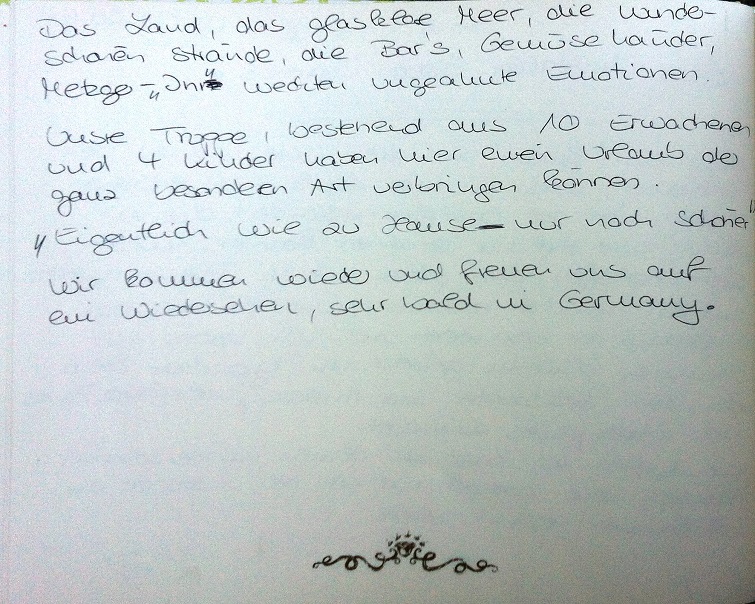 Das Land, das glasklare Meer, die wunde-
schönen Strände, die Bar's, Gemüsehänder,
Metzge - "Ini" weckten ungeahnte Emotionen.
Unsre Truppe, bestehend aus 10 Erwachenen
und 4 Kinder haben hier einen Urlaub de
ganz besonderen Art verbringen können.
"Eigentlich wie zu Hause - nur noch schöner"
Wir kommen wiede und freuen uns auf
ein Wiedesehen, sehr bald in Germany.